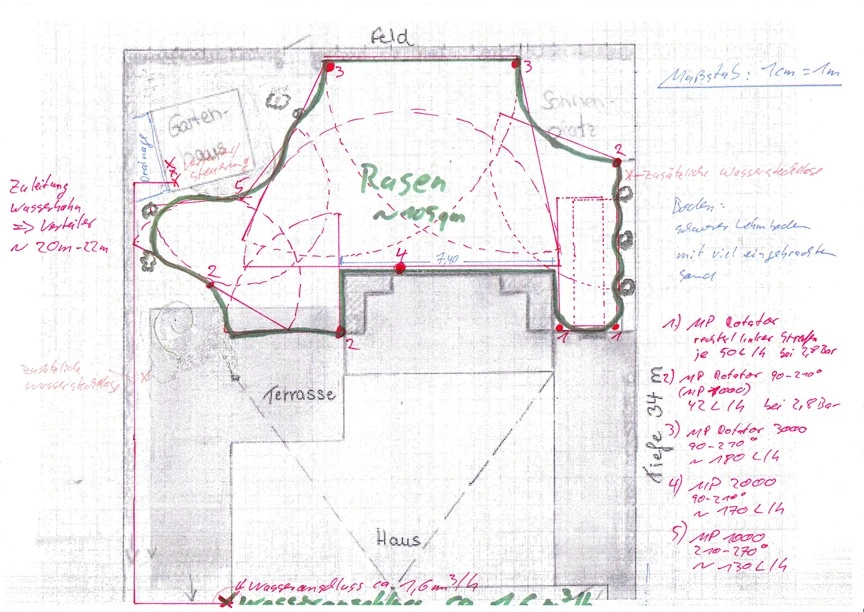 Feld
Maßstab: 1cm = 1m
Garten-
haus
Drainage
Verteiler/
steuerung
Sonnen-
platz
Zusätzliche Wassersteckdose
Zuleitung
Wasserhahn
=> Verteiler
~ 20m-22m
Rasen
~ 105 qm
Boden:
schwerer Lehmboden
mit viel eingebrachten
Sand
3
3
2
5
4
7,40
2
2
1
1
1) MP Rotator
rechter/linker Streifen
je 50 L/h bei 2,8 Bar
2) MP Rotator 90-210°
(MP 1000)
42 L/h bei 2,8 Bar
3) MP Rotator 3000
90-210°
~ 180 L/h
4) MP 2000
90-210°
~ 170 L/h
5) MP 1000
210-270°
~ 130 L/h
Zusätzliche
Wassersteckdose
Terrasse
Tiefe 34 m
Haus
Wasseranschluss ca. 1,6 m³/h
Wasseranschluss ca. 1,6 m³/h